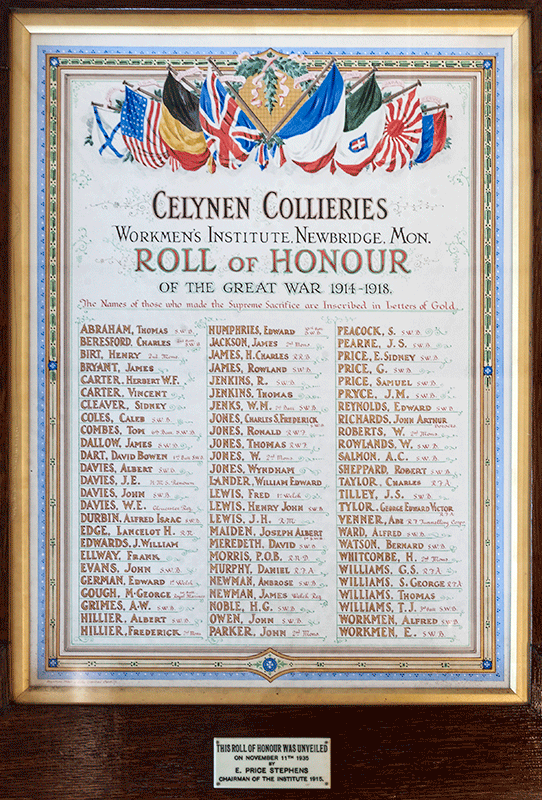 CELYNEN COLLIERIES
WORKMEN'S INSTITUTE, NEWBRIDGE, MON.
ROLL OF HONOUR
OF THE GREAT WAR 1914-1918.
The Names of those who made the Supreme Sacrifice are Inscribed in Letters of Gold.
ABRAHAM, THOMAS S.W.B.
BERESFORD, CHARLES
BIRT, HENRY 2nd Mons
BRYANT, JAMES
CARTER, HERBERT W.F.
CARTER, VINCENT
CLEAVER, SIDNEY
COLES, CALEB S.W.B.
COMBES, TOM S.W.B.
DALLOW, JAMES S.W.B.
DART, DAVID BOWEN S.W.B.
DAVIES, ALBERT S.W.B.
DAVIES, J.E. H.M.S. Renown
DAVIES, JOHN S.W.B.
DAVIES, W.E. Gloucester Reg.
DURBIN, ALFRED ISAAC S.W.B.
EDGE, LANCELOT H. R.E.
EDWARDS, J. WILLIAM
ELLWAY, FRANK
EVANS, JOHN S.W.B.
GERMAN, EDWARD 1st Welch
GOUGH, M. GEORGE
GRIMES, A.W. S.W.B.
HILLIER, ALBERT S.W.B.
HILLIER, FREDERICK 2nd Mons
HUMPHRIES, EDWARD S.W.B.
JACKSON, JAMES 2nd Mons
JAMES, H. CHARLES R.R.D.
JAMES, ROWLAND S.W.B.
JENKINS, R. S.W.B.
JENKINS, THOMAS
JENKS, W.M. S.W.B.
JONES, CHARLES S. FREDERICK S.W.B.
JONES, RONALD R.W.F.
JONES, THOMAS R.W.F.
JONES, W. 2nd Mons
JONES, WYNDHAM
LANDER, WILLIAM EDWARD
LEWIS, FRED 1st Welch
LEWIS, HENRY JOHN S.W.B.
LEWIS, J.H. R.M.
MAIDEN, JOSEPH ALBERT
MEREDETH, DAVID S.W.B.
MORRIS, P.O.B. R.N.D.
MURPHY, DANIEL R.F.A.
NEWMAN, AMBROSE S.W.B.
NEWMAN, JAMES Welch Reg.
NOBLE, H.G. S.W.B.
OWEN, JOHN S.W.B.
PARKER, JOHN 2nd Mons
PEACOCK, S. S.W.B.
PEARNE, J.S. S.W.B.
PRICE, E. SIDNEY S.W.B.
PRICE, G. S.W.B.
PRICE, SAMUEL S.W.B.
PRYCE, J.M. S.W.B.
REYNOLDS, EDWARD S.W.B.
RICHARDS, JOHN ARTHUR
ROBERTS, W. 2nd Mons
ROWLANDS, W. S.W.B.
SALMON, A.C. S.W.B.
SHEPPARD, ROBERT S.W.B.
TAYLOR, CHARLES R.F.A.
TILLEY, J.S. S.W.B.
TYLOR, GEORGE EDWARD VICTOR
VENNER, ABE R.F. Tunnelling Corps
WARD, ALFRED S.W.B.
WATSON, BERNARD S.W.B.
WHITCOMBE, H. 2nd Mons
WILLIAMS, G.S. R.F.A.
WILLIAMS, S. GEORGE R.F.A.
WILLIAMS, THOMAS
WILLIAMS, T.J. S.W.B.
WORKMEN, ALFRED S.W.B.
WORKMEN, E. S.W.B.
THIS ROLL OF HONOUR WAS UNVEILED
ON NOVEMBER 11TH 1935
BY
E. PRICE STEPHENS
CHAIRMAN OF THE INSTITUTE 1915.